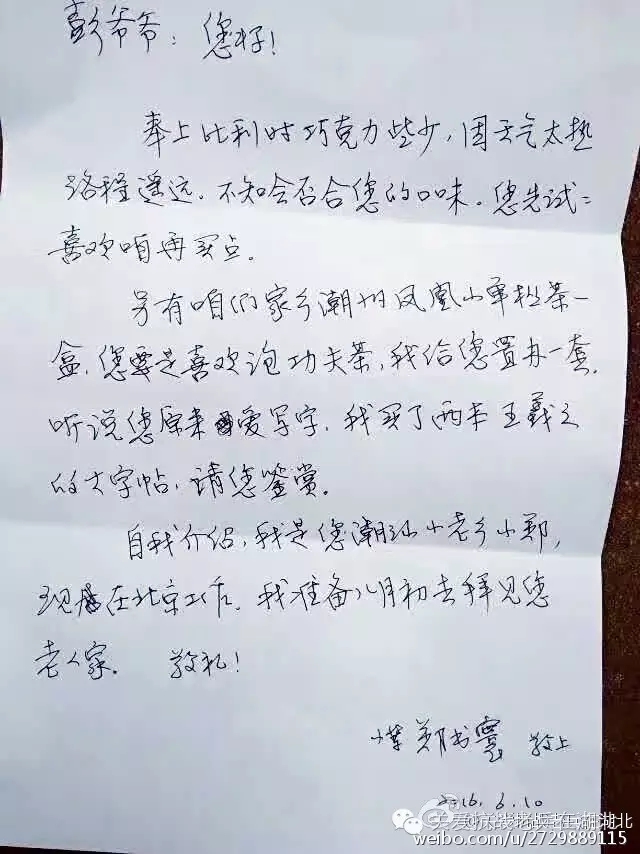 彭爷爷：您好！
奉上比利时巧克力些少，因天气太热
路程遥远，不知会否合您的口味。您先试：
喜欢咱再买点。
另有咱们家乡潮州凤凰山单枞茶一
盒，您要是喜欢泡功夫茶，我给您置办一套。
听说您原来爱写字，我买了两本王羲之
的大字帖，请您鉴赏。
自我介绍，我是您潮汕小老乡小郑，
现在北京工作，我准备八月初去拜见您
老人家。 敬礼！
郑书 敬上
2016.6.10
关爱抗战老兵在湖北
weibo.com/u/2729889115